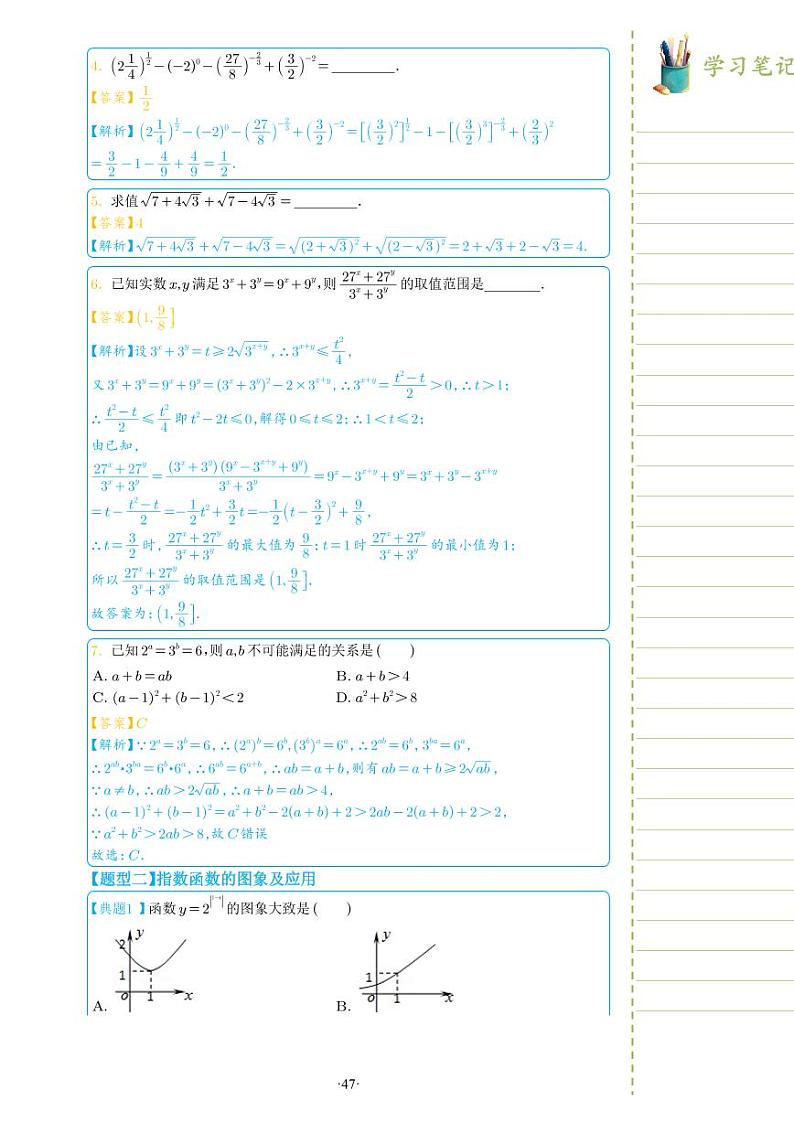 学习笔记
4. (2 1/4)^{1/2} - (-2)^0 - (27/8)^{-2/3} + (3/2)^{-2} = ________.
【答案】1/2
【解析】(2 1/4)^{1/2} - (-2)^0 - (27/8)^{-2/3} + (3/2)^{-2} = [(3/2)^2]^{1/2} - 1 - [(3/2)^3]^{-2/3} + (2/3)^2
= 3/2 - 1 - 4/9 + 4/9 = 1/2.
5. 求值√(7+4√3) + √(7-4√3) = ________.
【答案】4
【解析】√(7+4√3) + √(7-4√3) = √((2+√3)^2) + √((2-√3)^2) = 2+√3+2-√3 = 4.
6. 已知实数 x,y 满足 3^x+3^y=9^x+9^y,则 (27^x+27^y)/(3^x+3^y) 的取值范围是________.
【答案】(1, 9/8]
【解析】设 3^x+3^y=t≥2√(3^{x+y}),∴3^{x+y}≤t^2/4,
又 3^x+3^y=9^x+9^y=(3^x+3^y)^2-2×3^{x+y},∴3^{x+y}=(t^2-t)/2>0,∴t>1;
∴(t^2-t)/2≤t^2/4 即 t^2-2t≤0,解得 0≤t≤2;∴1<t≤2;
由已知,
(27^x+27^y)/(3^x+3^y)=((3^x+3^y)(9^x-3^{x+y}+9^y))/(3^x+3^y)=9^x-3^{x+y}+9^y=3^x+3^y-3^{x+y}
=t-(t^2-t)/2=-1/2 t^2+3/2 t=-1/2(t-3/2)^2+9/8,
∴t=3/2 时,(27^x+27^y)/(3^x+3^y) 的最大值为 9/8;t=1时 (27^x+27^y)/(3^x+3^y) 的最小值为 1;
所以 (27^x+27^y)/(3^x+3^y) 的取值范围是 (1, 9/8].
故答案为:(1, 9/8].
7. 已知 2^a=3^b=6,则 a,b 不可能满足的关系是( )
A. a+b=ab B. a+b>4
C. (a-1)^2+(b-1)^2<2 D. a^2+b^2>8
【答案】C
【解析】∵2^a=3^b=6,∴(2^a)^b=6^b,(3^b)^a=6^a,∴2^{ab}=6^b,3^{ba}=6^a,
∴2^{ab}•3^{ba}=6^b•6^a,∴6^{ab}=6^{a+b},∴ab=a+b,则有 ab=a+b≥2√ab,
∵a≠b,∴ab>2√ab,∴a+b=ab>4,
∴(a-1)^2+(b-1)^2=a^2+b^2-2(a+b)+2>2ab-2(a+b)+2>2,
∵a^2+b^2>2ab>8,故 C 错误
故选:C.
【题型二】指数函数的图象及应用
【典题1 】函数 y=2 的图象大致是( )
A. y 2 1 o 1 x
B. y 1 o 1 x
·47·